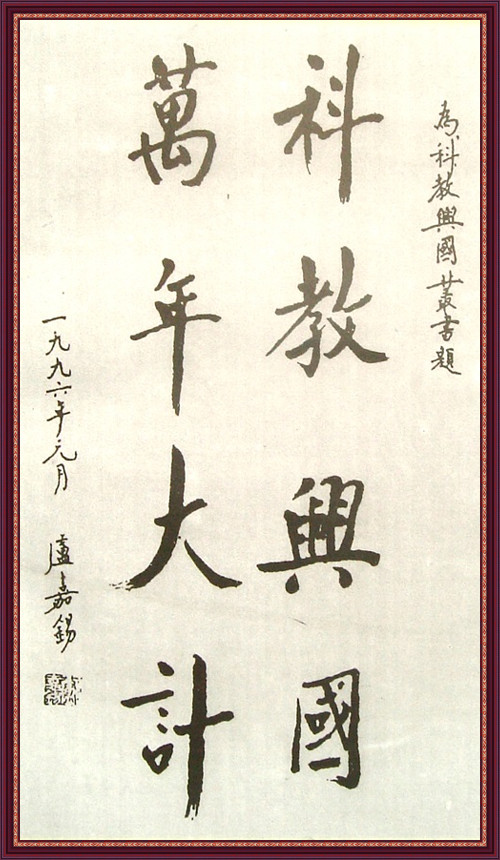 為科教興國叢書題
科教興國
萬年大計
一九九六年元月
盧嘉錫